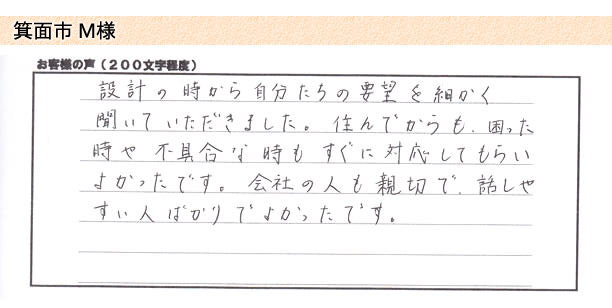 箕面市 M様
お客様の声（200文字程度）
設計の時から自分たちの要望を細かく
聞いていただきました。住んでからも、困った
時や不具合な時もすぐに対応してもらい
よかったです。会社の人も親切で、話しや
すい人ばかりでよかったです。